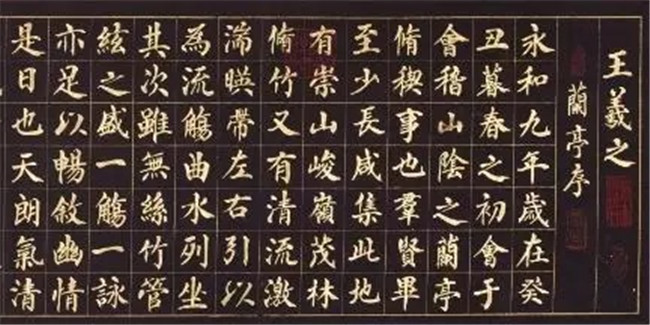 王羲之
蘭亭序
永和九年歲在癸
丑暮春之初會于
會稽山陰之蘭亭
脩稧事也羣賢畢
至少長咸集此地
有崇山峻嶺茂林
脩竹又有清流激
湍暎帶左右引以
為流觴曲水列坐
其次雖無絲竹管
絃之盛一觴一詠
亦足以暢敘幽情
是日也天朗氣清